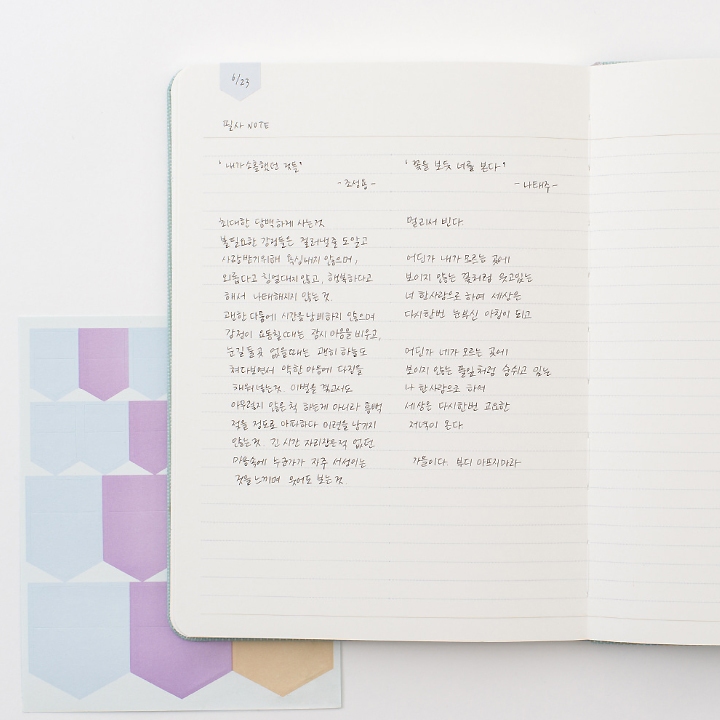 6/23
필사 NOTE
'내가 소홀했던 것들'
- 조성용 -
최대한 담백하게 사는것
불필요한 감정들은 걸러낼줄 도알고
사랑받기위해 욕심내지 않으며,
외롭다고 칭얼대지않고, 행복하다고
해서 나태해지지 않는 것.
괜한 다툼에 시간을 낭비하지 않으며
감정이 요동칠때는 잠시 마음을 비우고,
눈길 둘 곳 없을때는 괜히 하늘도
쳐다보면서 약한 마음에 다짐을
채워넣는것. 이별을 겪고서도
아무렇지 않은척 하는게 아니라 흠뻑
젖을 정도로 아파하다 미련을 남기지
않는것 긴 시간 자리잡은적 없던
마음속에 누군가가 자주 서성이는
것을 느끼며 웃어도 보는것
'꽃을 보듯 너를 본다'
- 나태주 -
멀리서 빈다.
어딘가 내가 모르는 곳에
보이지 않는 꽃처럼 웃고있는
너 한사람으로 하여 세상은
다시한번 눈부신 아침이 되고
어딘가 네가 모르는 곳에
보이지 않는 풀잎처럼 숨쉬고 있는
나 한사람으로 하여
세상은 다시한번 고요한
저녁이 온다
가을이다. 부디 아프지마라